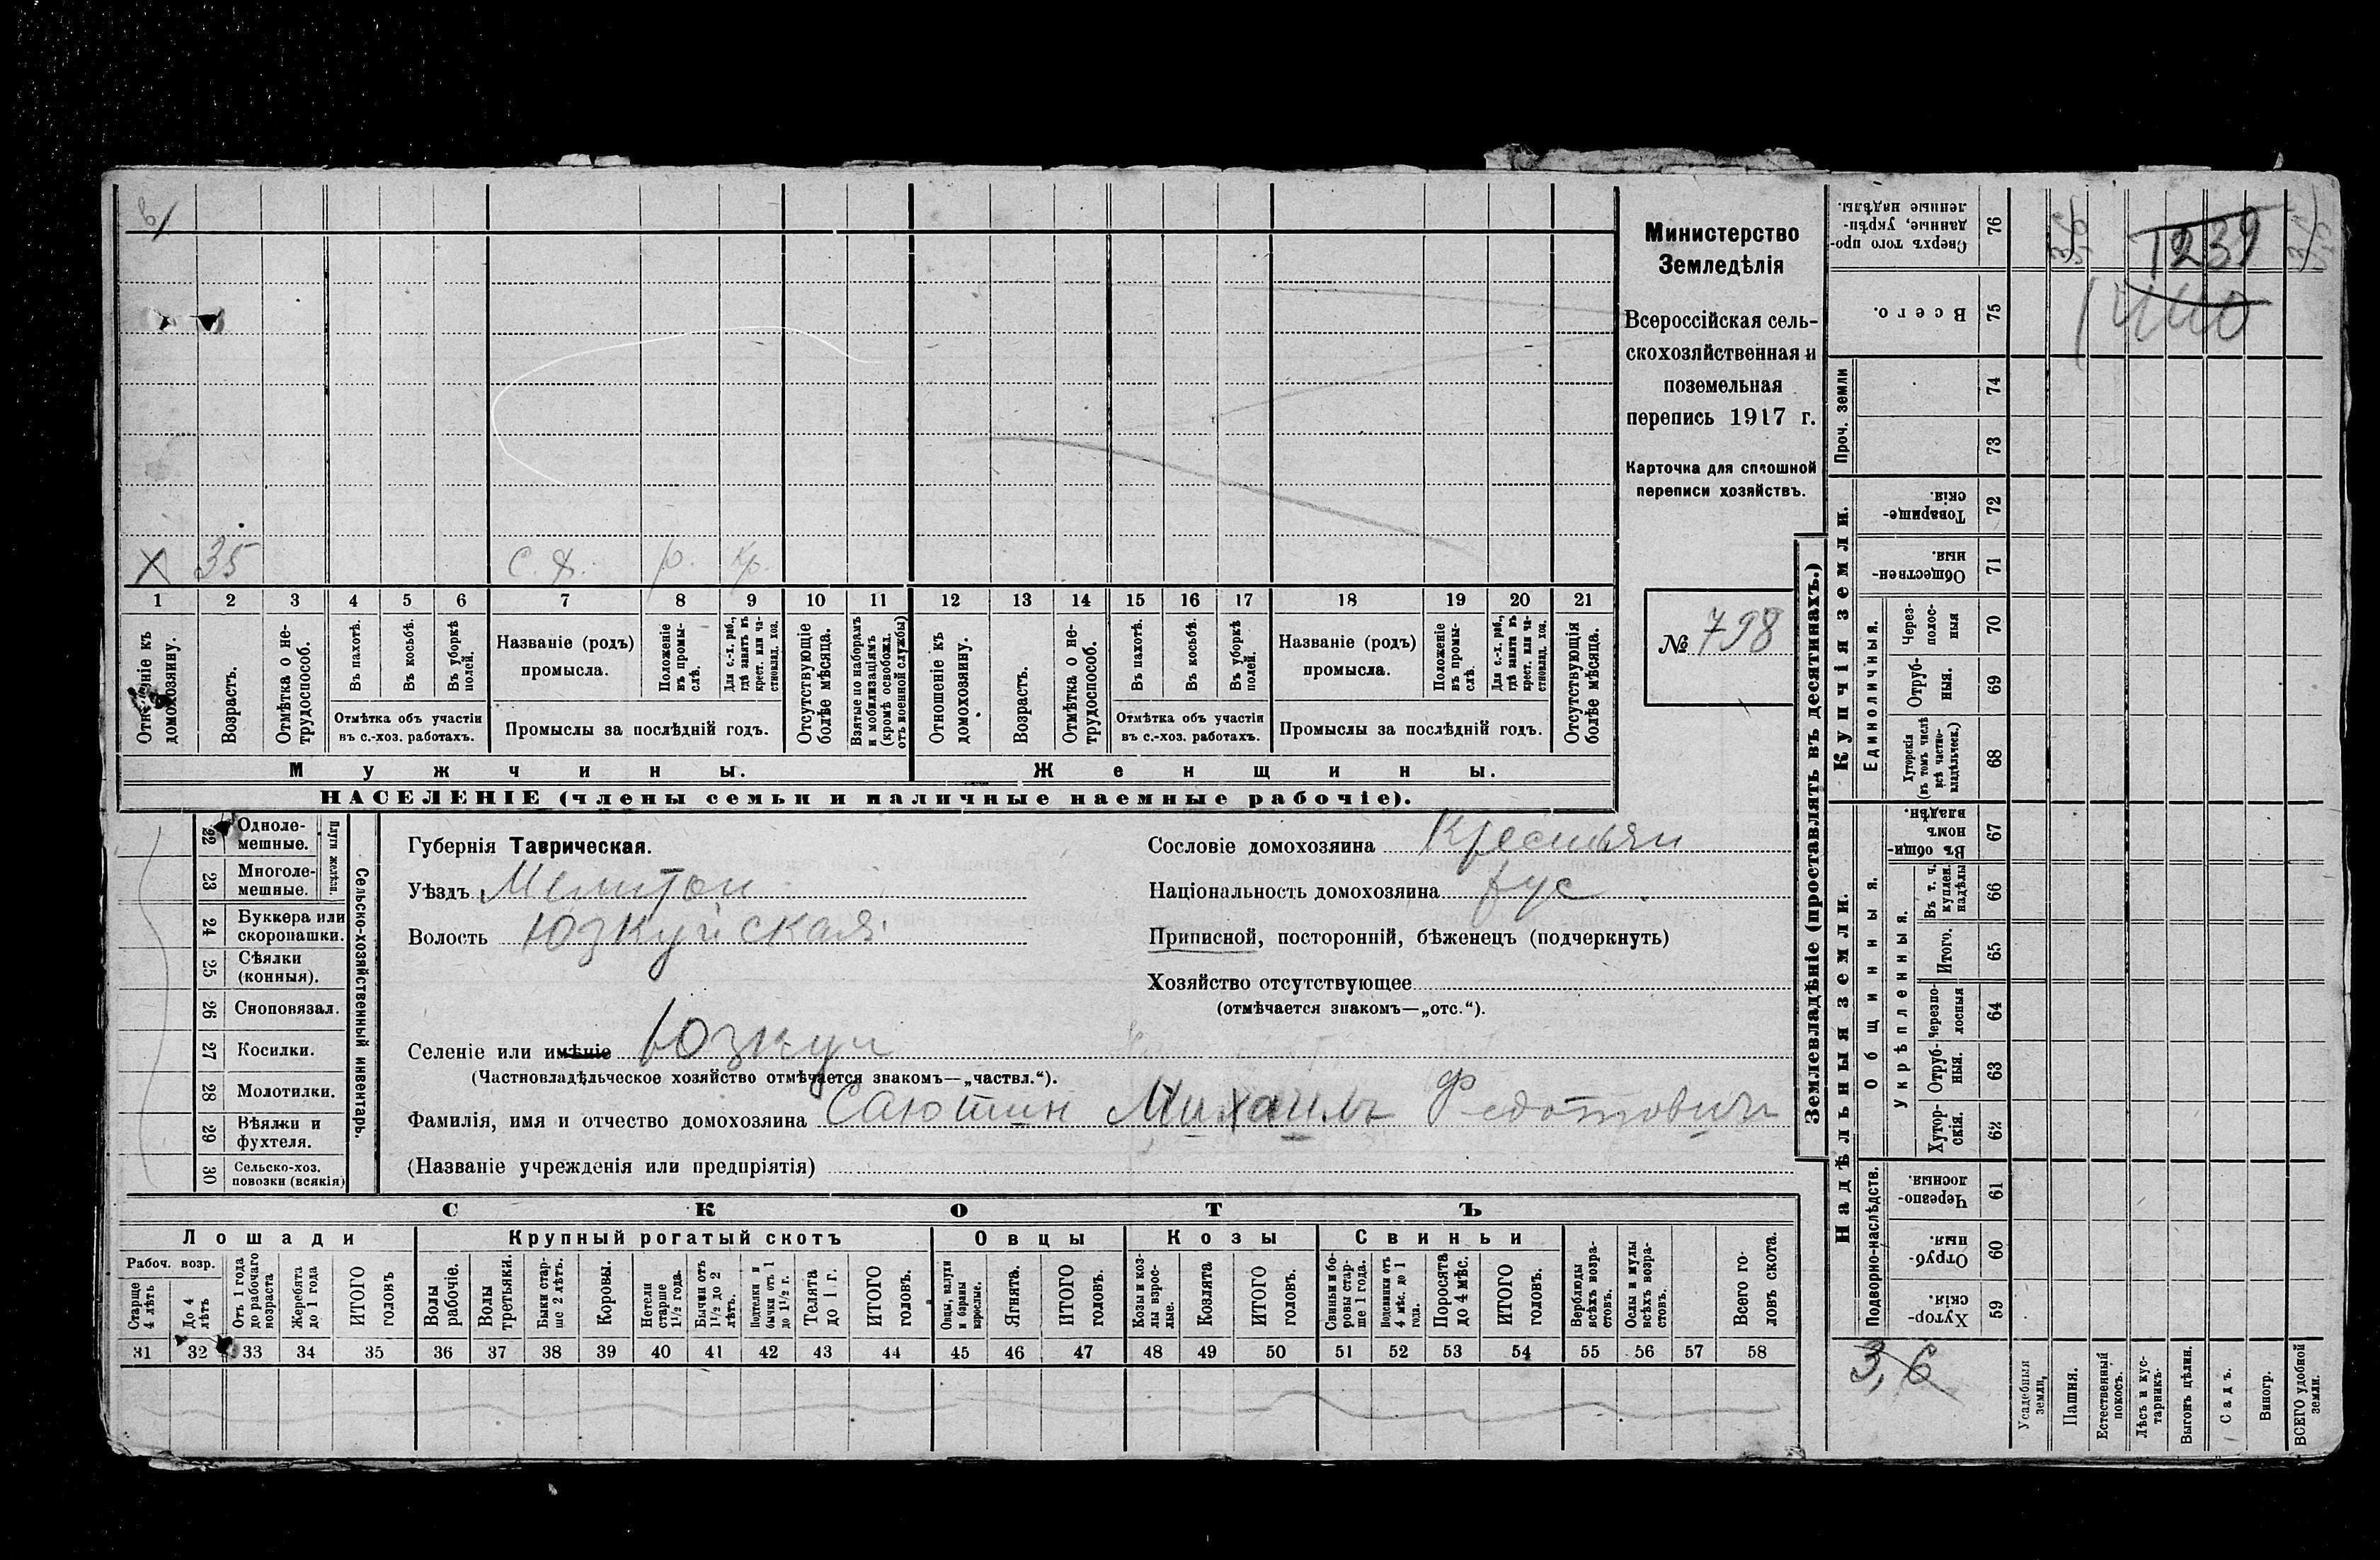 X 35 с. х. р. кр.
1 2 3 4 5 6 7 8 9 10 11 12 13 14 15 16 17 18 19 20 21
Отношеніе къ домохозяину.
Возрастъ.
Отмѣтка о не-трудоспособ.
Въ пахотѣ.
Въ косьбѣ.
Въ уборкѣ полей.
Отмѣтка объ участіи
въ с.-хоз. работахъ.
Названіе (родъ)
промысла.
Положеніе въ промы-слѣ.
Для с.-х. раб., гдѣ занятъ въ крест. или ча-стновлад. хоз.
Промыслы за послѣдній годъ.
Отсутствующіе болѣе мѣсяца.
Взятые по наборамъ и мобилизаціямъ (кромѣ освобожд. отъ военной службы)
Отношеніе къ домохозяину.
Возрастъ.
Отмѣтка о не-трудоспособ.
Въ пахотѣ.
Въ косьбѣ.
Въ уборкѣ полей.
Отмѣтка объ участіи
въ с.-хоз. работахъ.
Названіе (родъ)
промысла.
Положеніе въ промы-слѣ.
Для с.-х. раб., гдѣ занята въ крест. или ча-стновлад. хоз.
Промыслы за послѣдній годъ.
Отсутствующія болѣе мѣсяца.
Мужчины.
Женщины.
НАСЕЛЕНІЕ (члены семьи и наличные наемные рабочіе).
Министерство
Земледѣлія
Всероссійская сель-
скохозяйственная и
поземельная
перепись 1917 г.
Карточка для сплошной
переписи хозяйствъ.
№ 798
22 Одноле-мешные.
23 Многоле-мешные.
Плуги желѣзн.
24 Буккера или скоропашки.
25 Сѣялки (конныя).
26 Сноповязал.
27 Косилки.
28 Молотилки.
29 Вѣялки и фухтеля.
30 Сельско-хоз. повозки (всякія)
Сельско-хозяйственный инвентарь.
Губернія Таврическая.
Уѣздъ Мелитоп
Волость Юзкуйская
Селеніе или имѣніе Юзкуи
(Частновладѣльческое хозяйство отмѣчается знакомъ—„частвл.“).
Фамилія, имя и отчество домохозяина Саютин Михаилъ Федотовичъ
(Названіе учрежденія или предпріятія)
Сословіе домохозяина Крестьян
Національность домохозяина рус
Приписной, посторонній, бѣженецъ (подчеркнуть)
Хозяйство отсутствующее
(отмѣчается знакомъ—„отс.“).
СКОТЪ
Лошади
Крупный рогатый скотъ
Овцы
Козы
Свиньи
Рабоч. возр.
Старше 4 лѣтъ
До 4 лѣтъ
Отъ 1 года до рабочаго возраста
Жеребята до 1 года
ИТОГО головъ
Волы рабочіе.
Волы третьяки.
Быки стар-ше 2 лѣтъ.
Коровы.
Нетели старше 1½ года.
Бычки отъ 1½ до 2 лѣтъ.
Подтелки и бычки отъ 1 до 1½ г.
Телята до 1 г.
ИТОГО головъ.
Овцы, валухи и бараны взрослые.
Ягнята.
ИТОГО головъ.
Козы и коз-лы взрос-лые.
Козлята
ИТОГО головъ.
Свиньи и бо-ровы стар-ше 1 года.
Подсвинки отъ 4 мѣс. до 1 года.
Поросята до 4 мѣс.
ИТОГО головъ.
Верблюды всѣхъ возра-стовъ.
Ослы и мулы всѣхъ возра-стовъ.
Всего го-ловъ скота.
31 32 33 34 35 36 37 38 39 40 41 42 43 44 45 46 47 48 49 50 51 52 53 54 55 56 57 58
Землевладѣніе (проставлять въ десятинахъ.)
Надѣльныя земли.
Купчія земли.
Проч. земли
Сверхъ того про-данные, укрѣп-ленные надѣлы. 76
Всего. 75
74
73
Товарище-скія. 72
Обществен-ныя. 71
Единоличныя.
Через-полос-ныя 70
Отруб-ныя. 69
Хуторскія (въ томъ числѣ всѣ частно-владѣльческ.) 68
Общинныя.
Въ общи-номъ владѣн. 67
Укрѣпленныя.
Въ т. ч. куплен. надѣлы 66
Итого. 65
Черезпо-лосныя 64
Отруб-ныя. 63
Хутор-скія. 62
Подворно-наслѣдств.
Черезпо-лосныя. 61
Отруб-ныя. 60
Хутор-скія. 59
3,6
Усадебныя земли.
Пашня.
Естественный покосъ.
Лѣсъ и кус-тарникъ.
Выгонъ цѣлин.
Садъ.
Виногр.
ВСЕГО удобной земли.
1239
1440